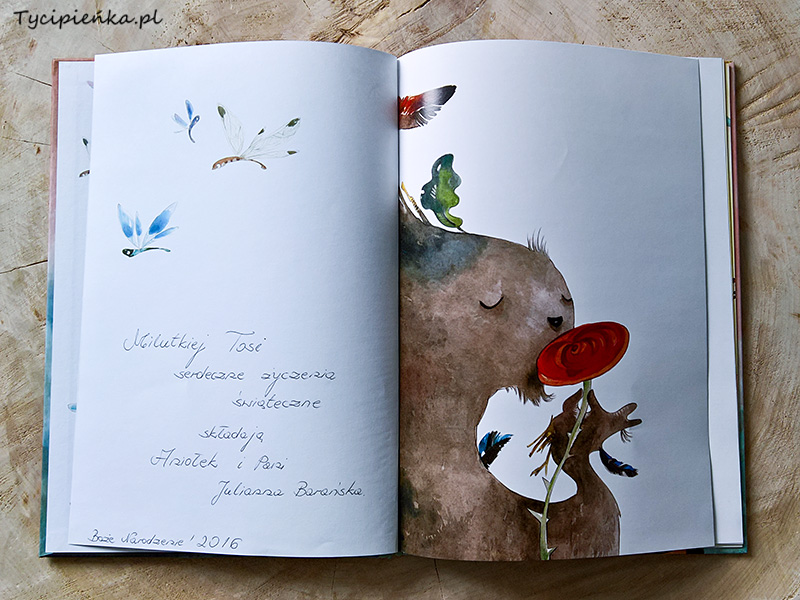 Tycipieńka.pl
Milutkiej Tosi
serdeczne życzenia
świąteczne
składają
Aniołek i Pani
Julianna Barańska.
Boże Narodzenie' 2016